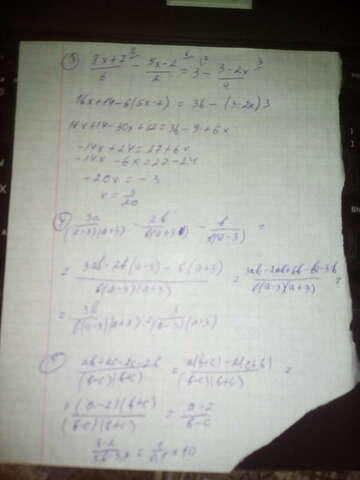 3) (8x+7)/6 ² - (5x-2)/2 ⁶ = 3 ¹² - (3-2x)/4 ³
16x+14-6(5x-2) = 36-(3-2x)3
16x+14-30x+12=36-9+6x
-14x+24=27+6x
-14x-6x=27-24
-20x=-3
x=3/20
4) 3a/((a-3)(a+3)) - 2b/(b(a+3)) - b/(b(a-3)) =
= (3ab-2b(a-3)-b(a+3))/(b(a-3)(a+3)) = (3ab-2ab+6b-ab-3b)/(b(a-3)(a+3)) =
= 3b/(b(a-3)(a+3)) = 3/((a-3)(a+3))
(ab+ac-2c-2b)/((b-c)(b+c)) = (a(b+c)-2(c+b))/((b-c)(b+c)) =
= ((a-2)(b+c))/((b-c)(b+c)) = (a-2)/(b-c)